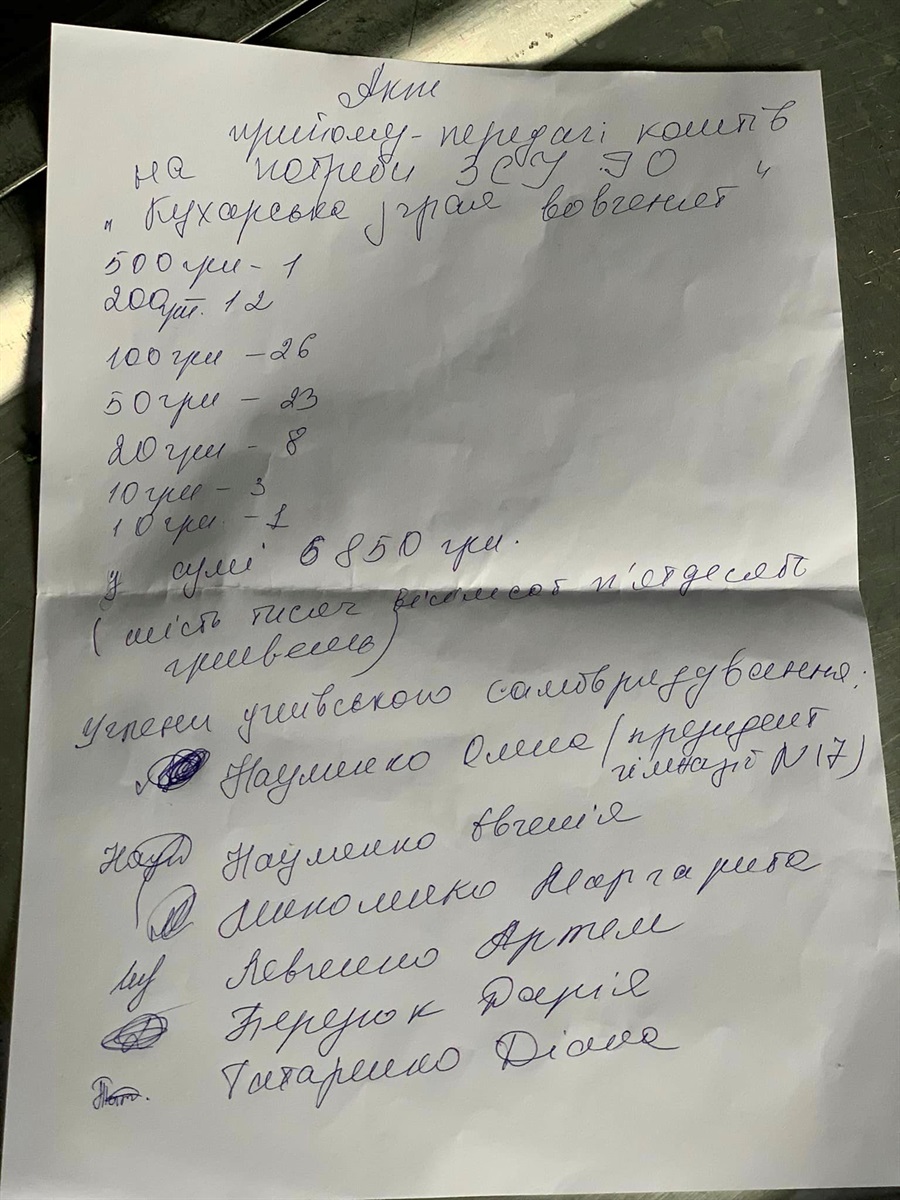 Акт
прийому-передачі коштів
на потреби ЗСУ ГО
"Кухарська зграя вовченят"
500 грн - 1
200 12
100 грн - 26
50 грн - 23
20 грн - 8
10 грн - 3
10 грн - 1
у сумі 6850 грн.
(шість тисяч вісімсот п'ятдесять
гривень)
Учлени учнівського самоврядування:
Науменко Олена (президент
гімназії N 17)
Науменко Євгенія
Маргарита
Левченко Артем
Дарія
Татаренко Діана